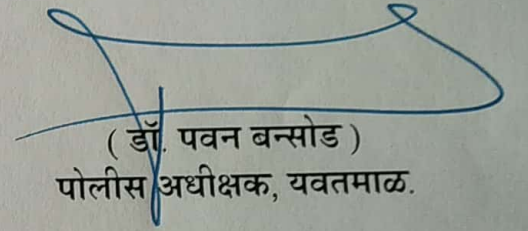 ( डॉ. पवन बन्सोड )
पोलीस अधीक्षक, यवतमाळ.